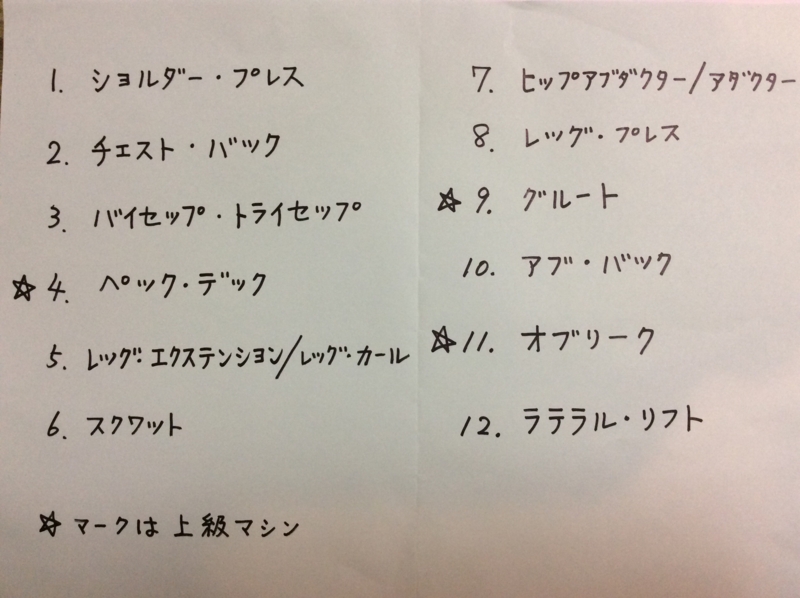 1. ショルダー・プレス
2. チェスト・バック
3. バイセップ・トライセップ
☆4. ペック・デック
5. レッグ・エクステンション/レッグ・カール
6. スクワット
☆マークは上級マシン
7. ヒップアブダクター/アダクター
8. レッグ・プレス
☆9. グルート
10. アブ・バック
☆11. オブリーク
12. ラテラル・リフト